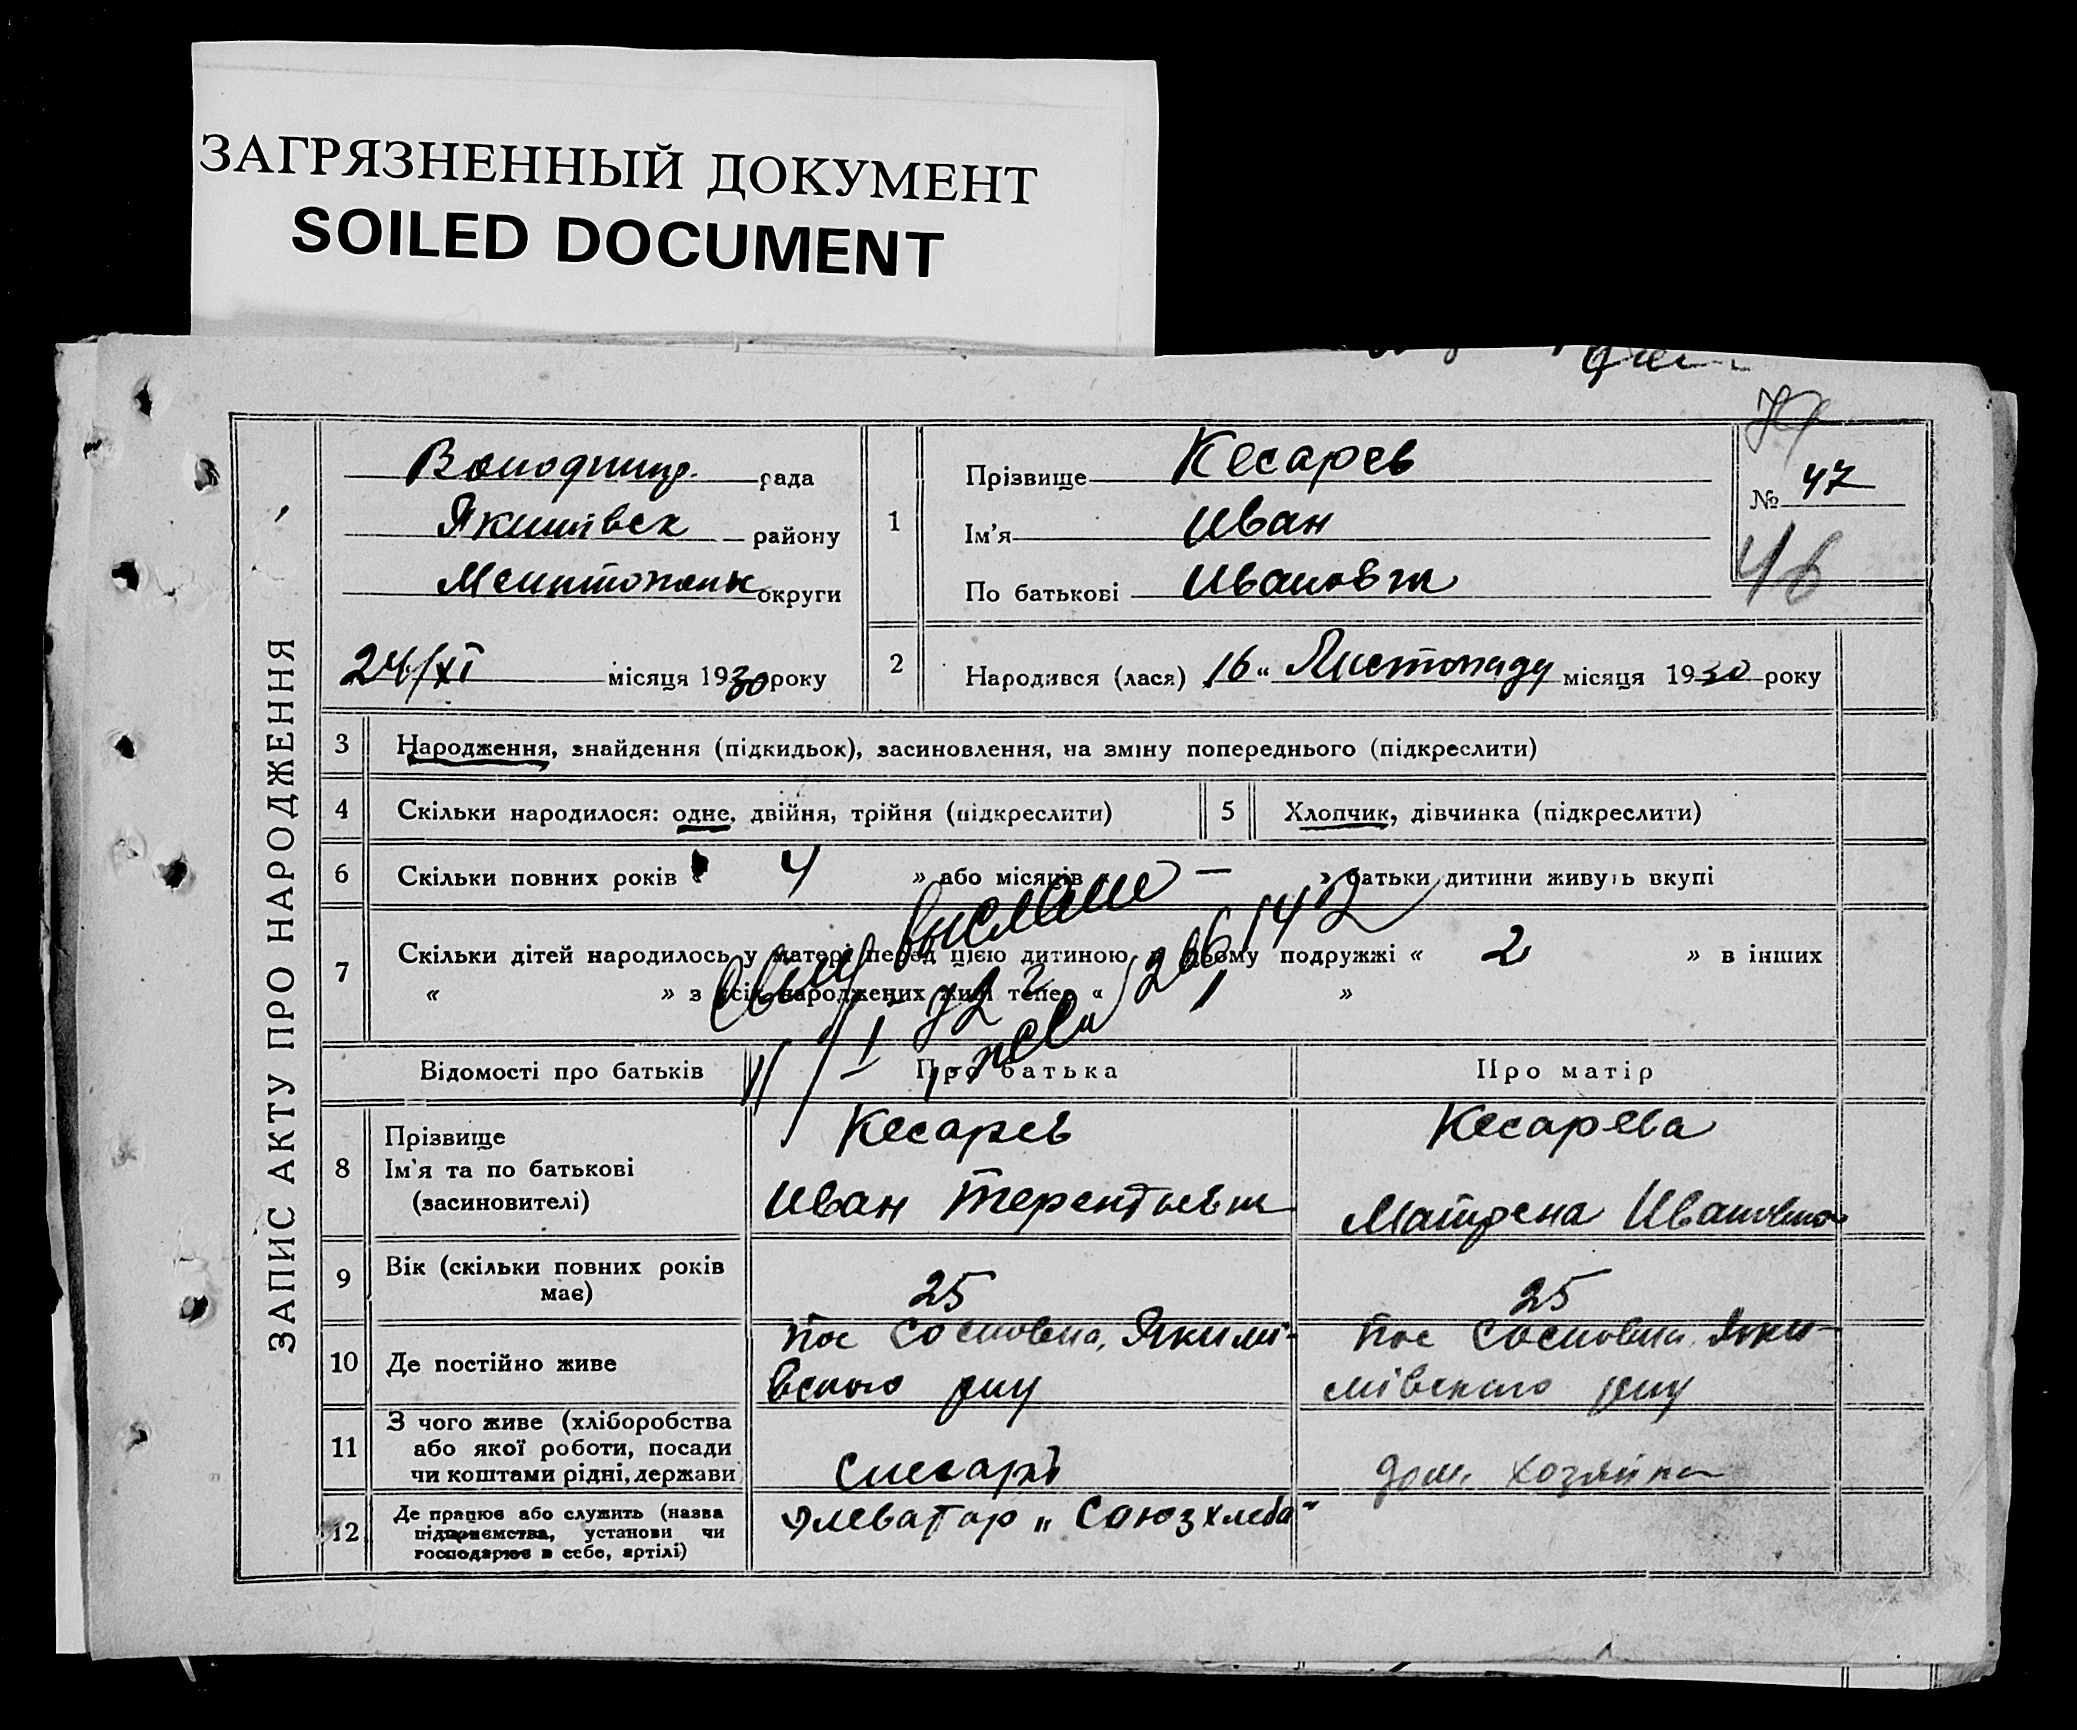 ЗАГРЯЗНЕННЫЙ ДОКУМЕНТ
SOILED DOCUMENT
ЗАПИС АКТУ ПРО НАРОДЖЕННЯ
рада
Якимівск району
округи
24/XI місяця 1930 року
1
Прізвище Кесарев
Ім'я Иван
По батькові Иванович
№ 47
46
2
Народився (лася) 16 " Листопаду місяця 1930 року
3 Народження, знайдення (підкидьок), засиновлення, на зміну попереднього (підкреслити)
4 Скільки народилося: одне, двійня, трійня (підкреслити)
5 Хлопчик, дівчинка (підкреслити)
6 Скільки повних років « 4 » або місяців « — » батьки дитини живуть вкупі
7 Скільки дітей народилось у матері перед цією дитиною в цьому подружжі « 2 » в інших
« » з усіх народжених живі тепер « 1 »
Відомості про батьків
Про батька
Про матір
8 Прізвище
Ім'я та по батькові
(засиновителі)
Кесарев
Иван Терентьевич
Кесарева
Матрена Ивановна
9 Вік (скільки повних років
має)
25
25
10 Де постійно живе
пос Сосновка, Якимі-
вского рну
пос Сосновка Яки-
мівского рну
11 З чого живе (хліборобства
або якої роботи, посади
чи коштами рідні, держави
Слесарь
дом. хозяйка
12 Де працює або служить (назва
підприємства, установи чи
господарює в себе, артілі)
Элеватор „Союзхлеба"